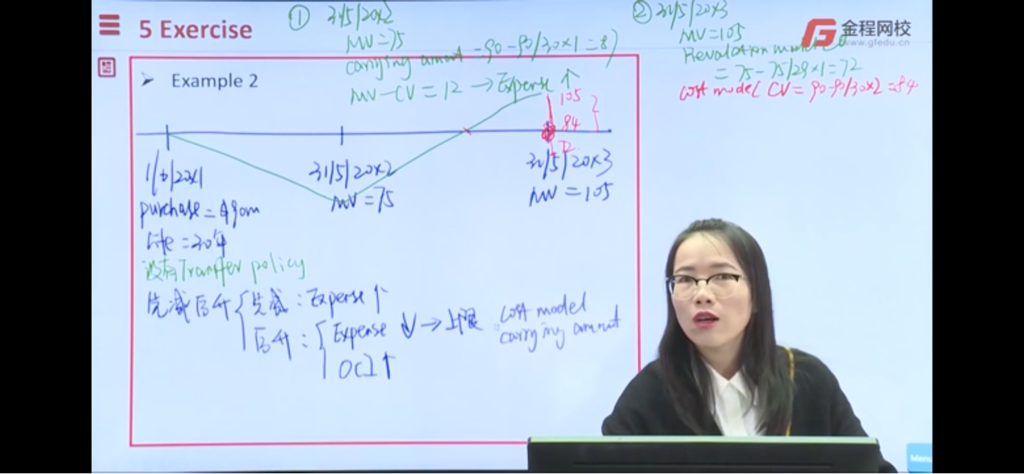 5 Exercise
① 31/5/20x2
MV=75
carrying amount =90-90/30x1=87
MV-CV=12→Expense↑
② 31/5/20x3
MV=105
金程网校
www.gfedu.cn
=75-75/29x1=72
cost model CV=90-90/30x2=84
Example 2
105
84
72
20x1
31/5/20x2
31/5/20x3
purchase=
MV=75
MV=105
life=30年
没有Transfer policy
先减后升
先减:Expense↑
后升:
Expense↓→上限:
cost model
carrying amount
OCI↑
Menu